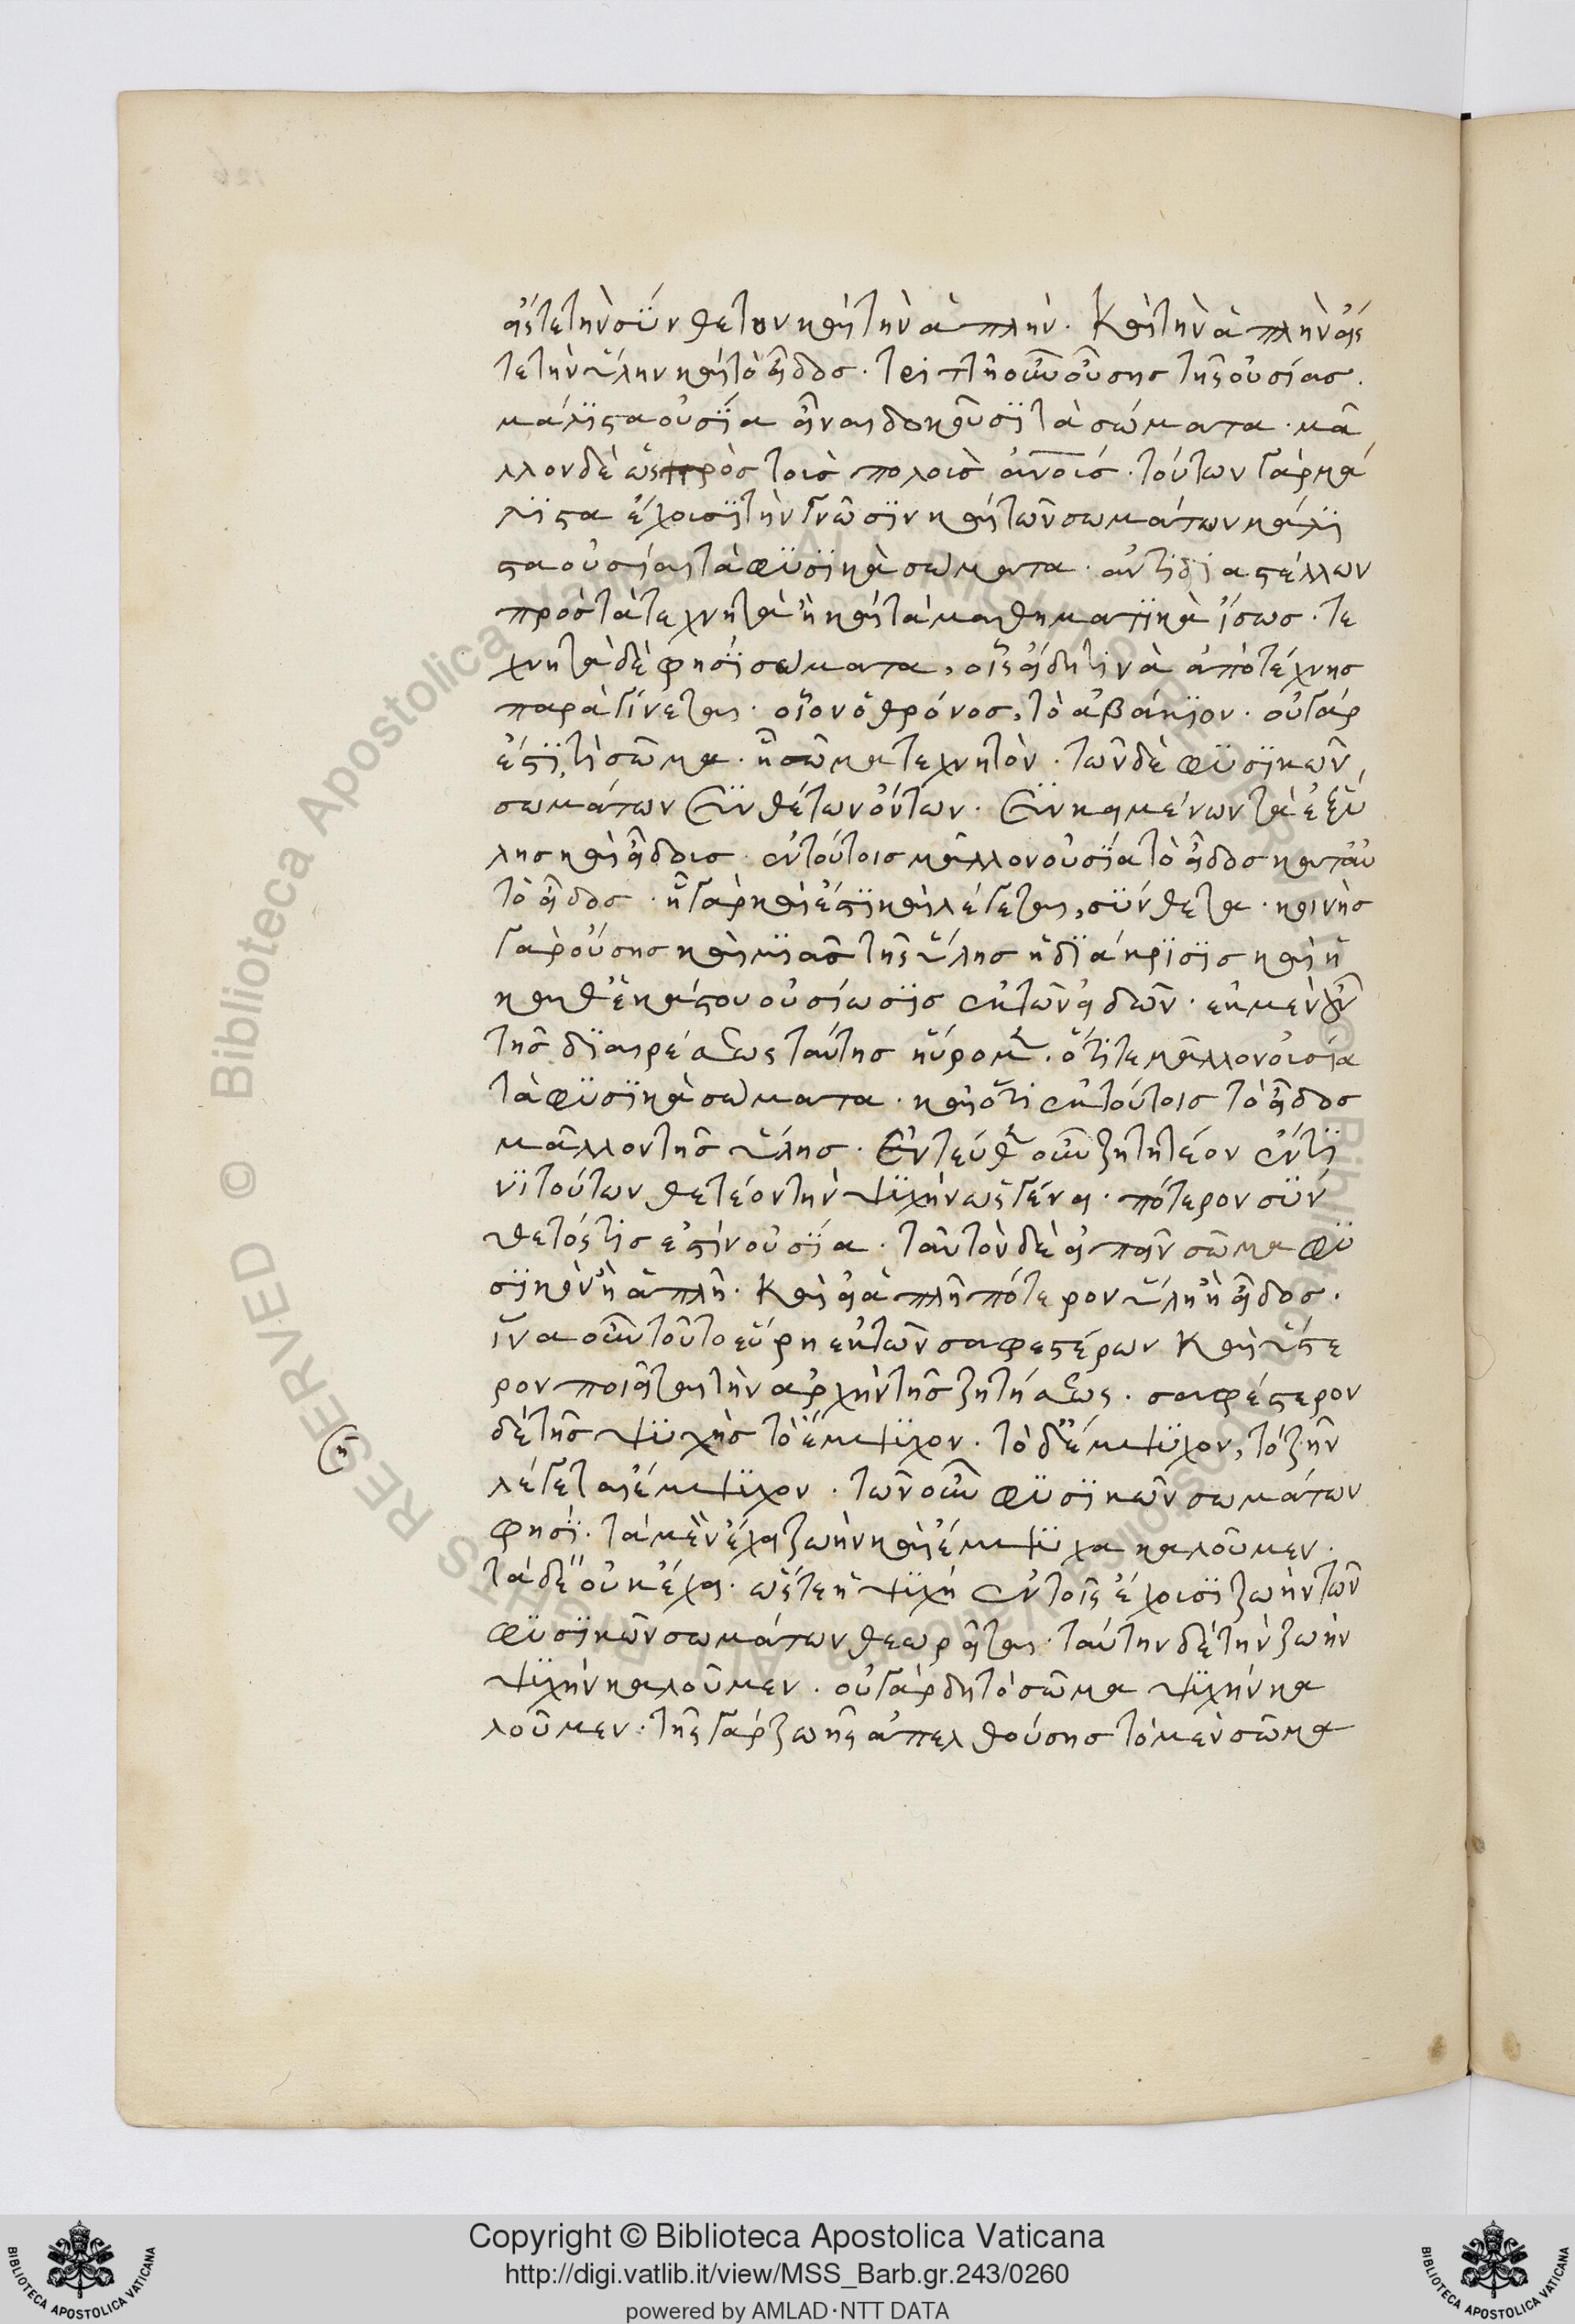 εἴς τε τὴν σύνθετον καὶ τὴν ἁπλήν. Καὶ τὴν ἁπλὴν εἴς
τε τὴν ὕλην καὶ τὸ εἶδος. τριττῆς οὖν οὔσης τῆς οὐσίας.
μάλιστα οὐσία εἶναι δοκοῦσι τὰ σώματα. μᾶ
λλον δὲ ὡς πρὸς τοῖς πολοῖς ἀνοις. τούτων γὰρ μά
λιστα ἔχουσι τὴν γνῶσιν καὶ τῶν σωμάτων μάλι
στα οὐσίαι τὰ φυσικὰ σώματα. ἀντιδιαστέλλων
πρὸς τὰ τεχνητὰ ἢ καὶ τὰ μαθηματικὰ ἴσως. τε
χνητὰ δέ φησι σώματα, οἷς εἴδη τινὰ ἀπὸ τέχνης
παραγίνεται. οἷον ὁ θρόνος, τὸ ἀβάκιον. οὐ γάρ
ἐστι τὶ σῶμα. ᾗ σῶμα τεχνητὸν. τῶν δὲ φυσικῶν
σωμάτων συνθέτων ὄντων. συγκειμένων τὲ ἐξ ὕ
λης καὶ εἴδους. ἐν τούτοις μᾶλλον οὐσία τὸ εἶδος κατ αὐ
τὸ εἶδος. ᾗ γὰρ καὶ ἐστὶ καὶ λέγεται, σύνθετα. κοινῆς
γὰρ οὔσης καὶ μιᾶς τῆς ὕλης ἡ διάκρισις καὶ ἡ
καθ ἑκάστου οὐσίωσις ἐκ τῶν εἰδῶν. ἐκ μὲν οὖν
τῆς διαιρέσεως ταύτης εὕρομεν. ὅτι τε μᾶλλον οὐσία
τὰ φυσικὰ σώματα. καὶ ὅτι ἐν τούτοις τὸ εἶδος
μᾶλλον τῆς ὕλης. Ἐντεῦθεν οὖν ζητητέον ἐν τί
νι τούτων θετέον τὴν ψυχὴν ὡς γένει. πότερον σύν
θετός τις ἐστὶν οὐσία. ταυτὸν δὲ εἰπεῖν σῶμα φυ
σικὸν ἢ ἁπλῆ. Καὶ εἰ ἁπλῆ πότερον ὕλη ἢ εἶδος.
ἵνα οὖν τοῦτο εὕρη ἐκ τῶν σαφεστέρων καὶ ὕστε
ρον ποιεῖται τὴν ἀρχὴν τῆς ζητήσεως. σαφέστερον
δὲ τῆς ψυχῆς τὸ ἔμψυχον. τὸ δ ἔμψυχον, τὸ ζῆν
λέγεται ἔμψυχον. τῶν οὖν φυσικῶν σωμάτων
φησι. τὰ μὲν ἔχει ζωὴν καὶ ἔμψυχα καλοῦμεν.
τὰ δὲ οὐκ ἔχει. ὥστε ἡ ψυχὴ ἐν τοῖς ἔχουσι ζωὴν τῶν
φυσικῶν σωμάτων θεωρεῖται. ταύτην δὲ τὴν ζωὴν
ψυχὴν καλοῦμεν. οὐ γὰρ δὴ τὸ σῶμα ψυχὴν κα
λοῦμεν. τῆς γὰρ ζωῆς ἀπελθούσης τὸ μὲν σῶμα
Copyright © Biblioteca Apostolica Vaticana
http://digi.vatlib.it/view/MSS_Barb.gr.243/0260
powered by AMLAD·NTT DATA